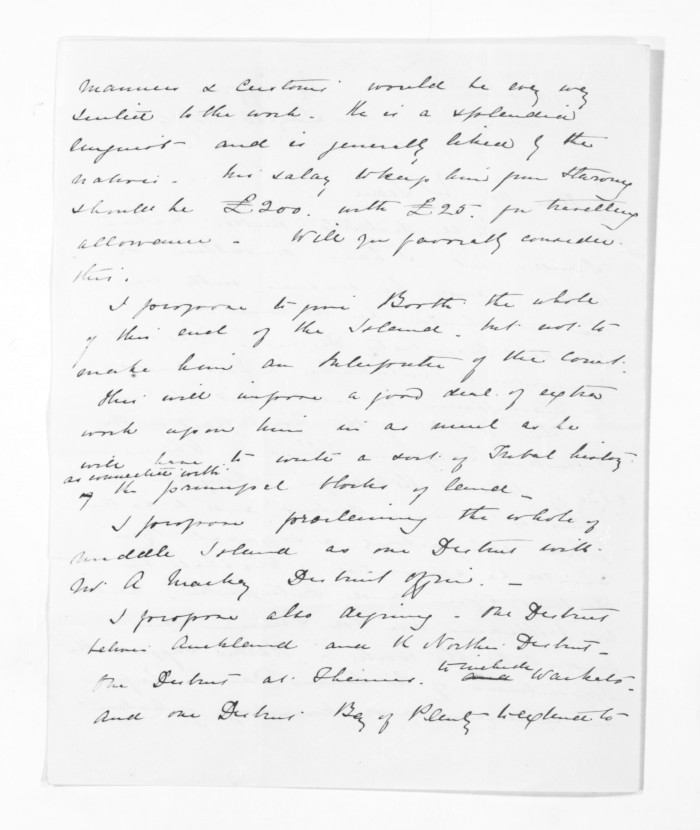 manners & customs would be every way
suited to the work. He is a splendid
linguist and is generally liked by the
natives. his salary to keep him from starving
should be £200. with £25. for travelling
allowance. Will you favorably consider
this.
I propose to give Booth the whole
of this end of the Island. but not to
make him an Interpreter of the Court.
This will impose a good deal of extra
work upon him in as much as he
will have to write a sort of Tribal history
as connected with
of the principal blocks of land_
I propose proclaiming the whole of
middle Island as one District with
Mr A Mackay District Officer. _
I propose also defining. One District
between Auckland and the North District_
One District at Thames. to include and Waikato_
and one District Bay of Plenty to extend to